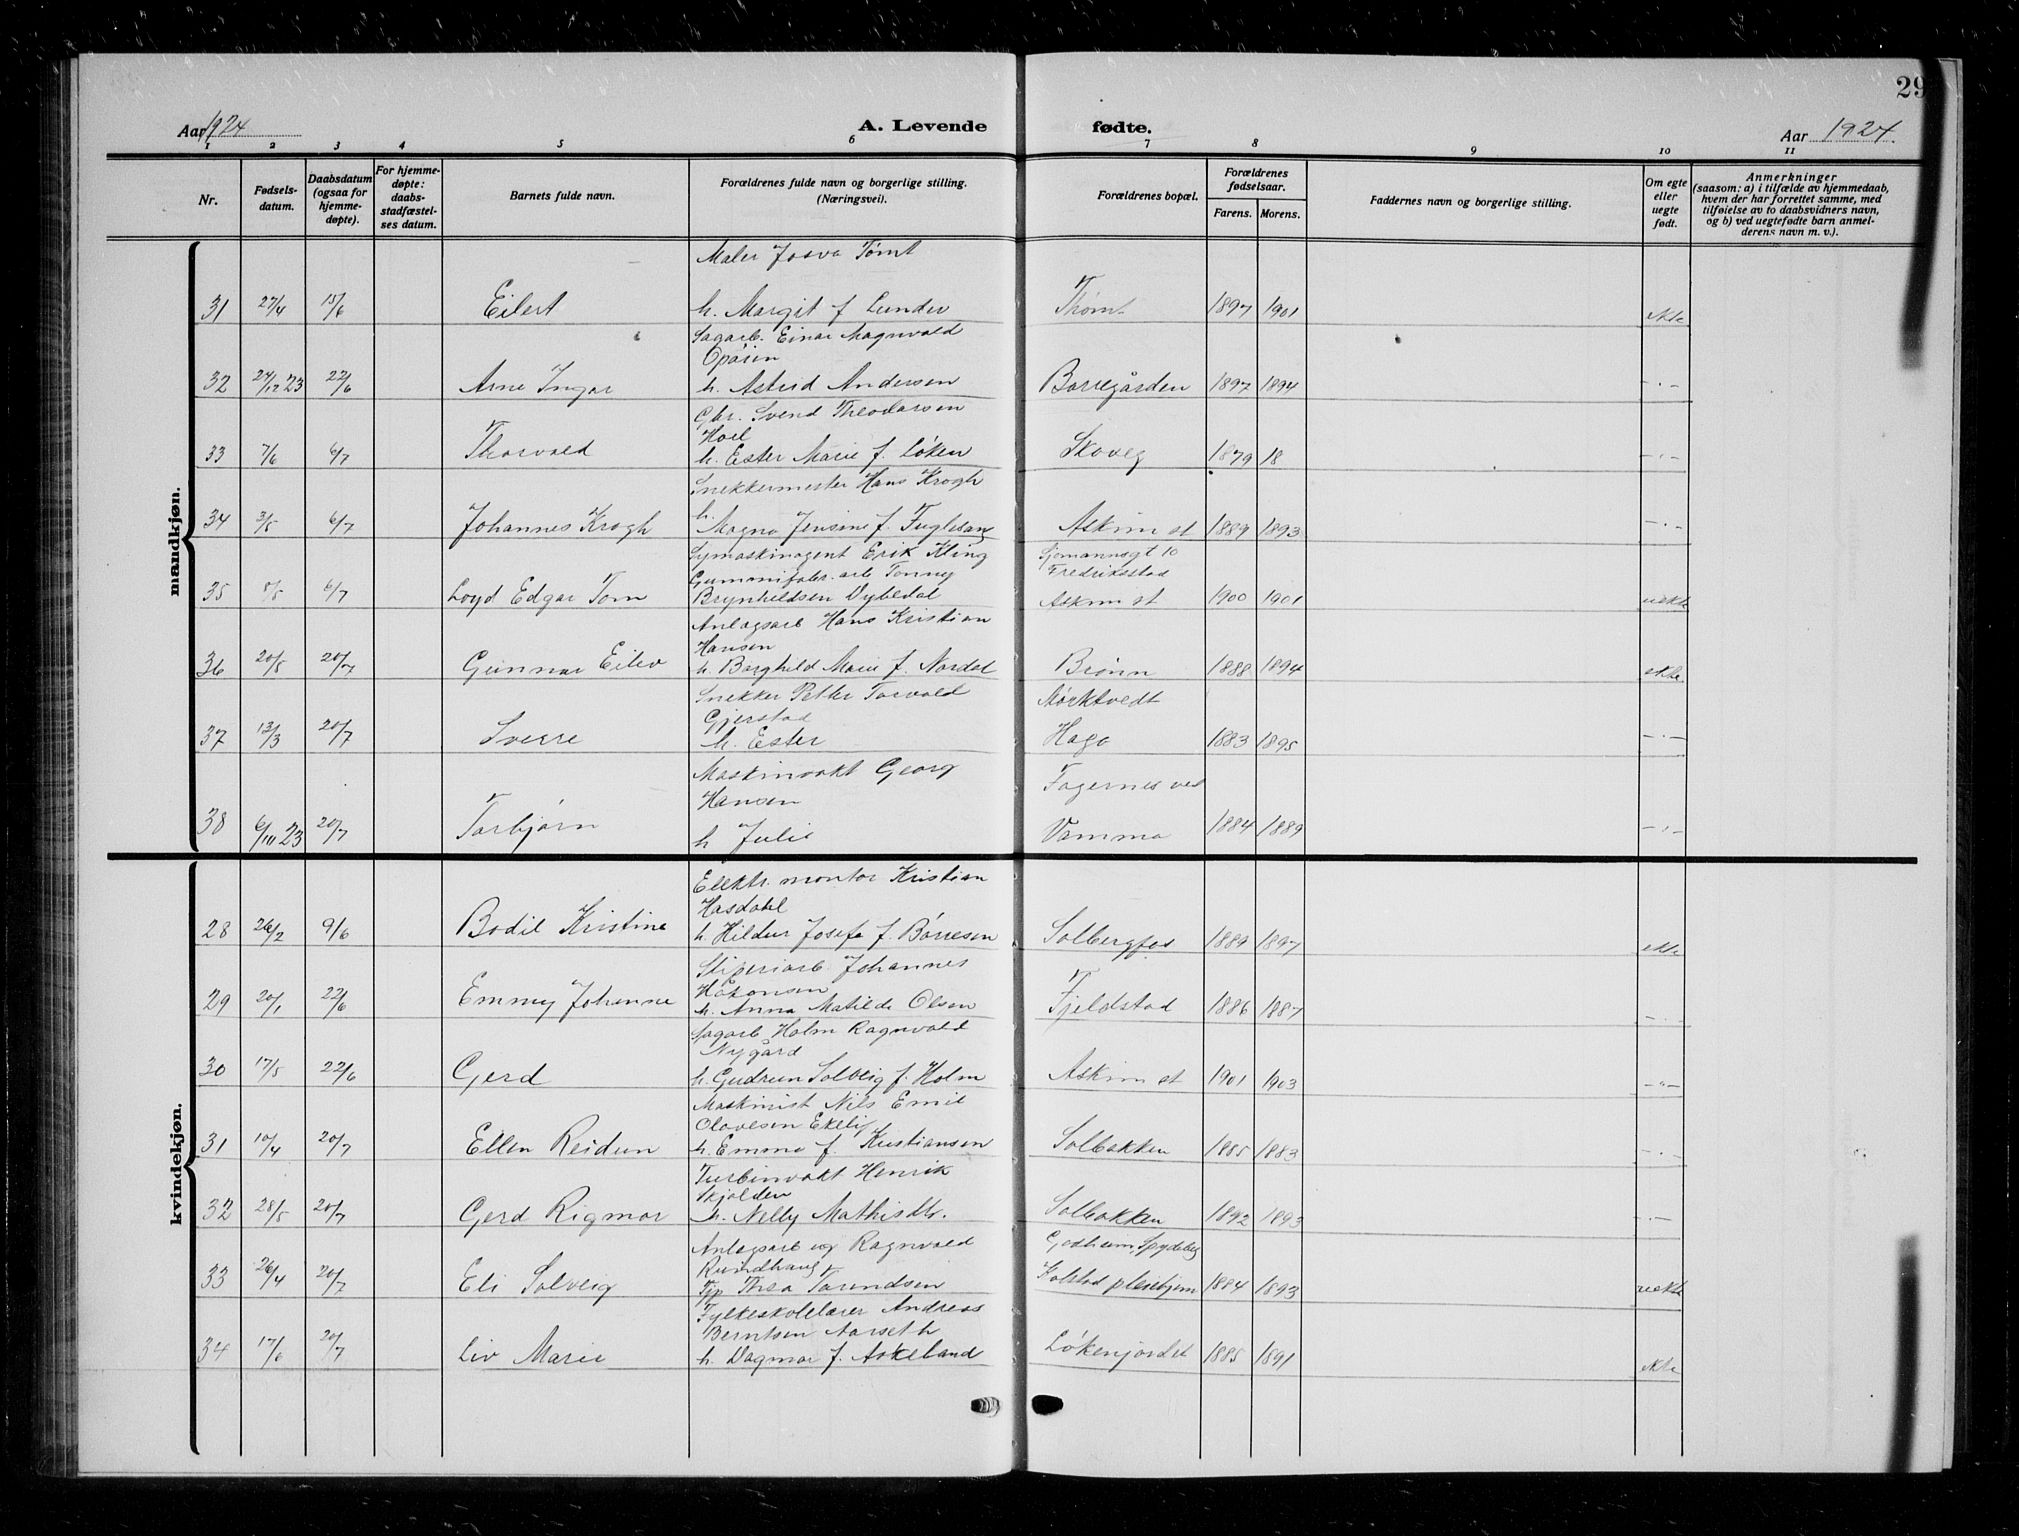 29
Aar 1924
A. Levende
fødte.
Aar 1924.
1 2 3 4 5 6 7 8 9 10 11
Nr.
Fødsels-
datum.
Daabsdatum
(ogsaa for
hjemme-
døpte).
For hjemme-
døpte:
daabs-
stadfæstel-
ses datum.
Barnets fulde navn.
Forældrenes fulde navn og borgerlige stilling.
(Næringsvei).
Forældrenes bopæl.
Forældrenes
fødselsaar.
Farens. Morens.
Faddernes navn og borgerlige stilling.
Om egte
eller
uegte
født.
Anmerkninger
(saasom: a) i tilfælde av hjemmedaab,
hvem der har forrettet samme, med
tilføielse av to daabsvidners navn,
og b) ved uegtefødte barn anmel-
derens navn m. v.).
mandkjøn.
Maler Josva Tømt
31 27/4 15/6 Eilert h. Margit f Lunder Thømt 1897 1901 ekte
Sagarb. Einar Magnvald
Opåsen
32 24/12 23 22/6 Arne Ingar h. Astrid Andersen Borregården 1897 1894 -"-
Gbr. Svend Theodorsen
Hoel
33 7/6 6/7 Thorvald h. Ester Marie f. Løken Skoveg 1879 18 -"-
Snekkermester Hans Krogh
34 3/5 6/7 Johannes Krogh h. Magna Jensine f. Fuglesang Askim st 1889 1893 -"-
Symaskinagent Erik Kling Sjomannsgt 10
Gummifabr. arb Tonny Fredriksstad
35 8/5 6/7 Loyd Edgar Tom Brynhildsen Vybedal Askim st 1900 1901 uekte
Anlagsarb Hans Kristian
Hansen
36 20/5 20/7 Gunnar Eilev h. Borghild Marie f. Nordal Brønn 1888 1894 ekte
Snekker Petter Torvald Mørktvedt
Gjerstad
37 13/3 20/7 Sverre h. Ester Haga 1883 1895 -"-
Maskinvakt Georg Fagernes ved
Hansen
38 6/10 23 20/7 Torbjørn h Julie Vamma 1884 1889 -"-
kvindekjøn.
Elektr. montør Kristian
Hasdahl
28 26/2 9/6 Bodil Kristine h. Hildur Josefa f. Børresen Solbergfos 1889 1897 ekte
Sliperiarb. Johannes
Håkonsen
29 20/1 22/6 Emmy Johanne h. Anna Matilde Olsen Fjeldstad 1886 1887 -"-
Sagarb Holm Ragnvald
Nygård
30 17/5 22/6 Gerd h. Gudrun Solveig f. Holm Askim st 1901 1903 -"-
Maskinist Nils Emil
Olavesen Ekelig
31 10/4 20/7 Ellen Reidun h. Emma f. Kristiansen Solbakken 1885 1883 -"-
Turbinvakt Henrik
Skjolden
32 28/5 20/7 Gerd Rigmor h. Nelly Mathisdtr. Solbakken 1892 1893 -"-
Anlagsarb og Ragnvald Godheim, Spydeberg
Rundhaug
33 26/4 20/7 Eli Solveig Tjp Thea Torundsen Kolstad pleiehjem 1884 1893 uekte
Fylkeskolelærer Andreas
Berntsen Aarseth
34 17/6 20/7 Liv Marie h. Dagmar f. Askeland Løkenjordet 1885 1891 ekte